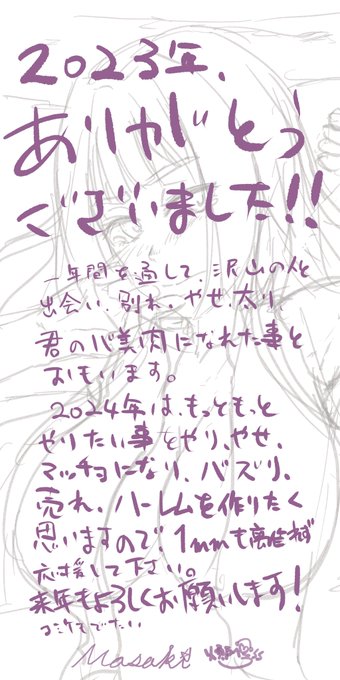 2023年、
ありがとう
ございました!!
一年間を通して、沢山の人と
出会い、別れ、やせ、太り、
君のバ美肉になれた事と
おもいます。
2024年は、もっともっと
やりたい事をやり、やせ、
マッチョになり、バズり、
売れ、ハーレムを作りたく
思いますので、1mmも離れず
応援して下さい。
来年もよろしくお願いします!
コミケもでたい
Masaki